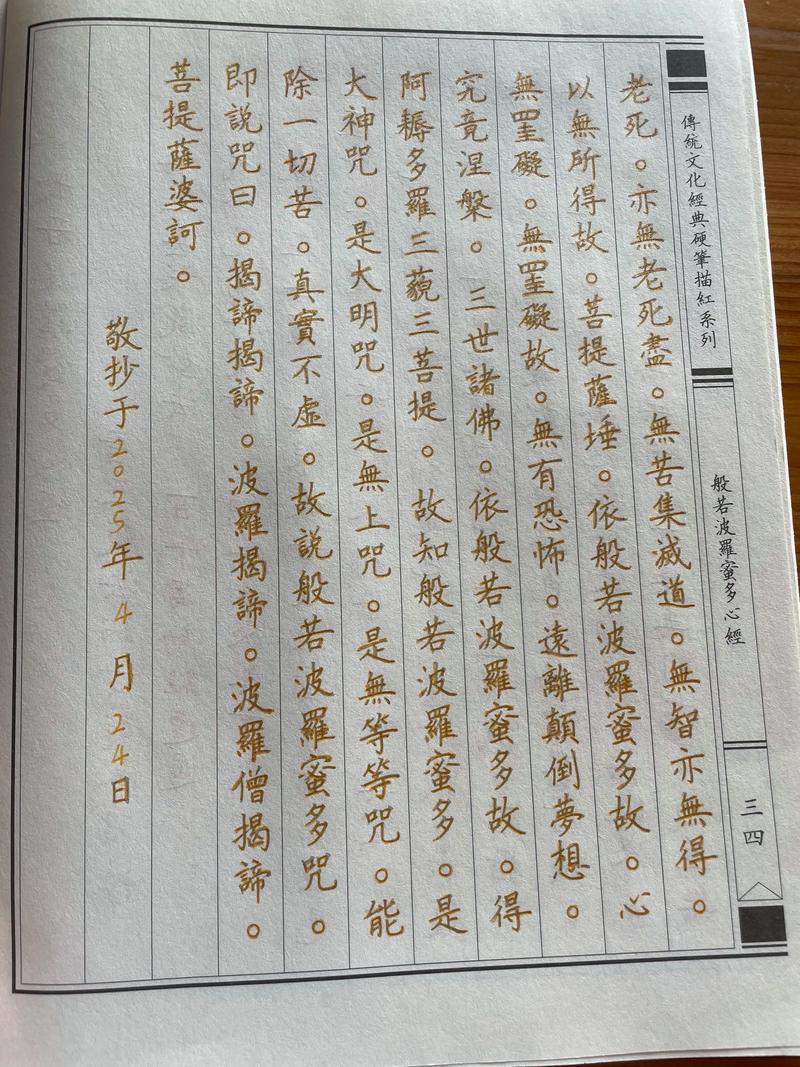 傳統文化經典硬筆描紅系列
般若波羅蜜多心經
三四
老死。亦無老死盡。無苦集滅道。無智亦無得。
以無所得故。菩提薩埵。依般若波羅蜜多故。心
無罣礙。無罣礙故。無有恐怖。遠離顛倒夢想。
究竟涅槃。三世諸佛。依般若波羅蜜多故。得
阿耨多羅三藐三菩提。故知般若波羅蜜多。是
大神咒。是大明咒。是無上咒。是無等等咒。能
除一切苦。真實不虛。故說般若波羅蜜多咒。
即說咒曰。揭諦揭諦。波羅揭諦。波羅僧揭諦。
菩提薩婆訶。
敬抄于2025年4月24日